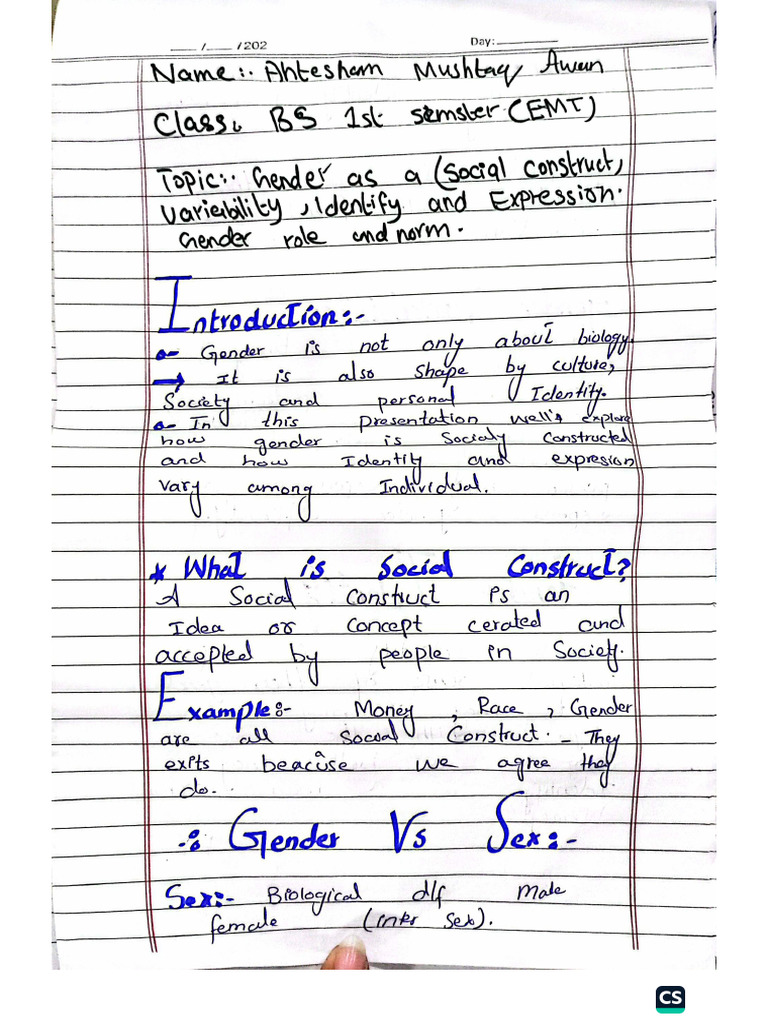 ___ /___ /202 Day:________
Name:. Ahtesham Mushtaq Awan
Class, BS 1st semster (EMT)
Topic:. Gender as a (Social Construct,
variability, Identify and Expression.
Gender role and norm.
Introduction:-
Gender is not only about biology.
→ It is also shape by culture,
Society and personal Identity.
In this presentation well's explore
how gender is Socialy Constructed
and how Identity and expresion
vary among Individual.
* What is Social Construct?
A Social Construct is an
Idea or concept cerated and
accepted by people in Society.
Example:- Money, Race, Gender
are all Social Construct. - They
exits beacause we agree they
do.
Gender Vs Sex:-
Sex:- Biological dif Male
female (inter sex).
CS